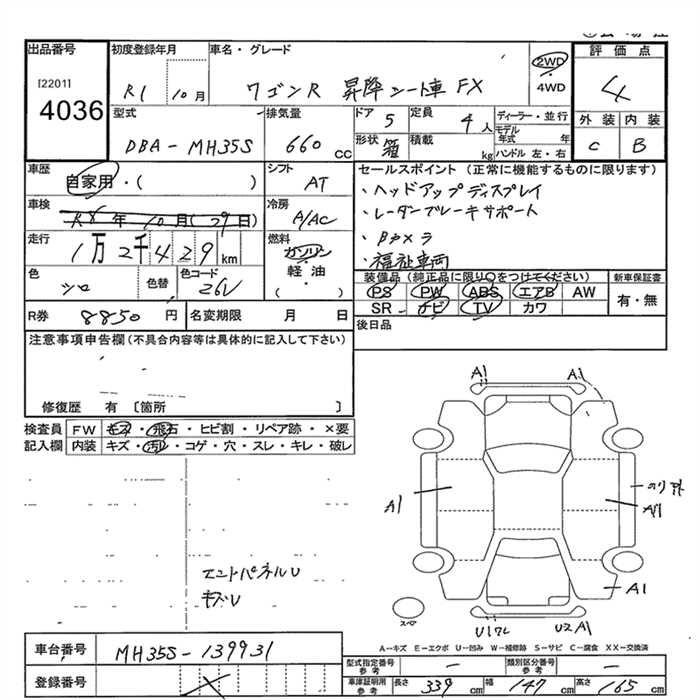 出品番号
[2201]
4036
初度登録年月
R1 10月
車名・グレード
ワゴンR 昇降シート車 FX
2WD
4WD
評価点
4
外装 内装
C B
型式
DBA-MH35S
排気量
660 cc
ドア 5
定員 4人
形状 箱
積載 kg
ディーラー・並行
モデル年式 年
ハンドル 左・右
車歴
自家用・( )
シフト
AT
車検
R8年10月(29日)
冷房
A/AC
走行
1万2千429km
燃料
ガソリン
軽油
( )
色
シロ
色替
色コード
26U
R券 8850円
名変期限 月 日
セールスポイント(正常に機能するものに限ります)
・ヘッドアップディスプレイ
・レーダーブレーキサポート
・Bカメラ
・福祉車両
装備品(純正品に限り○をつけてください)
PS PW ABS エアB AW
SR ナビ TV カワ
新車保証書
有・無
後日品
注意事項申告欄(不具合内容等は具体的に記入して下さい)
修復歴 有〔箇所 〕
検査員記入欄
FW キズ・飛石・ヒビ割・リペア跡・×要
内装 キズ・汚レ・コゲ・穴・スレ・キレ・破レ
エンドパネルU
キズU
A1 A1
A1
A1
A1
U2A1
スペ
A-キズ E-エクボ U-凹み W-補修跡 S-サビ C-腐食 XX-交換済
車台番号
MH35S-139931
登録番号
型式指定番号 参考 -
類別区分番号 参考 -
車庫証明用 参考 長さ 339 cm 幅 147 cm 高さ 165 cm